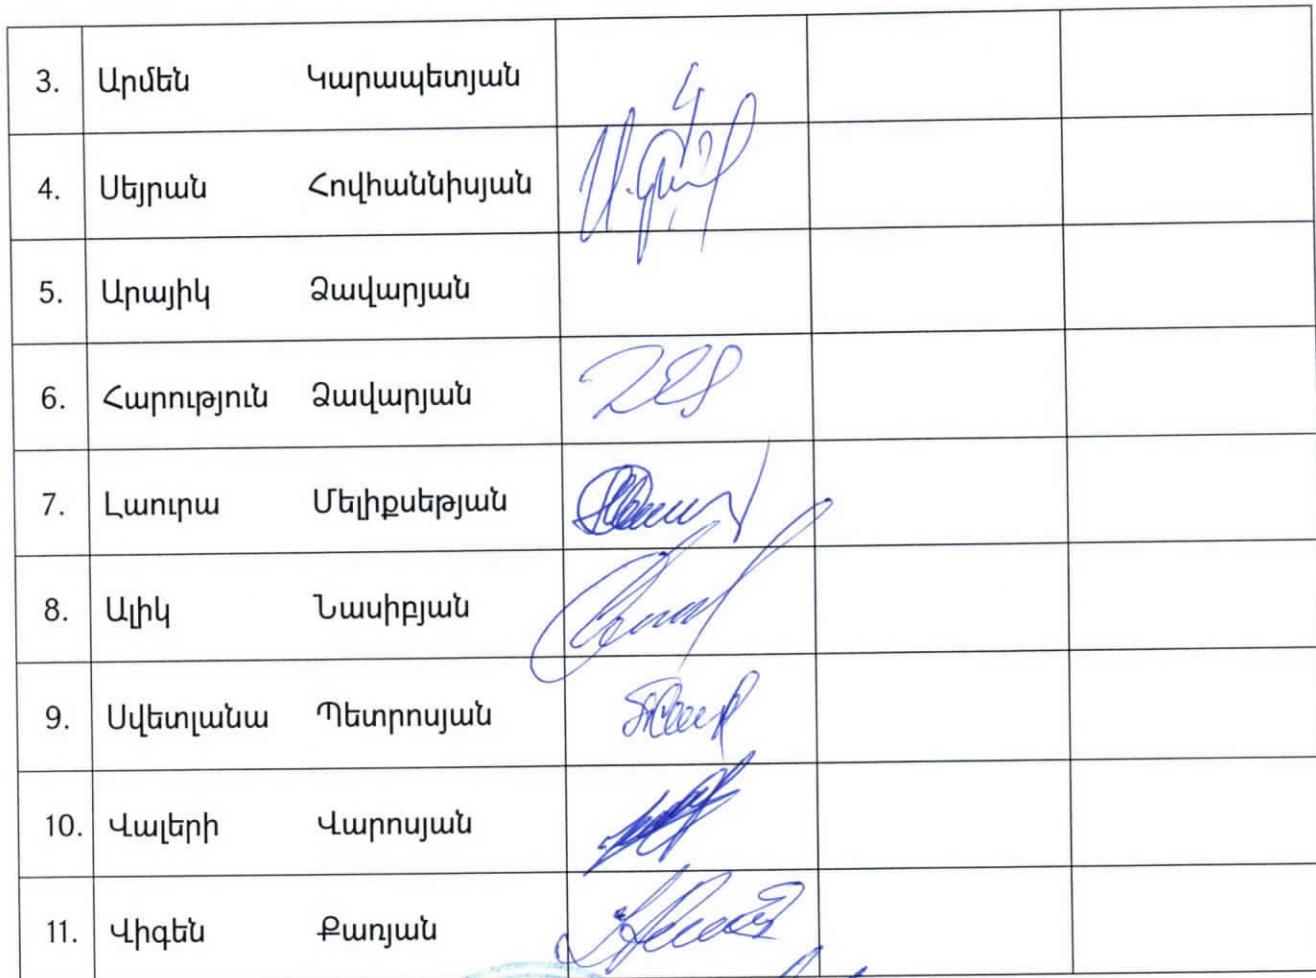 3. Արմեն Կարապետյան
4. Սեյրան Հովհաննիսյան
5. Արայիկ Զավարյան
6. Հարություն Զավարյան
7. Լաուրա Մելիքսեթյան
8. Ալիկ Նասիբյան
9. Սվետլանա Պետրոսյան
10. Վալերի Վարոսյան
11. Վիգեն Քառյան